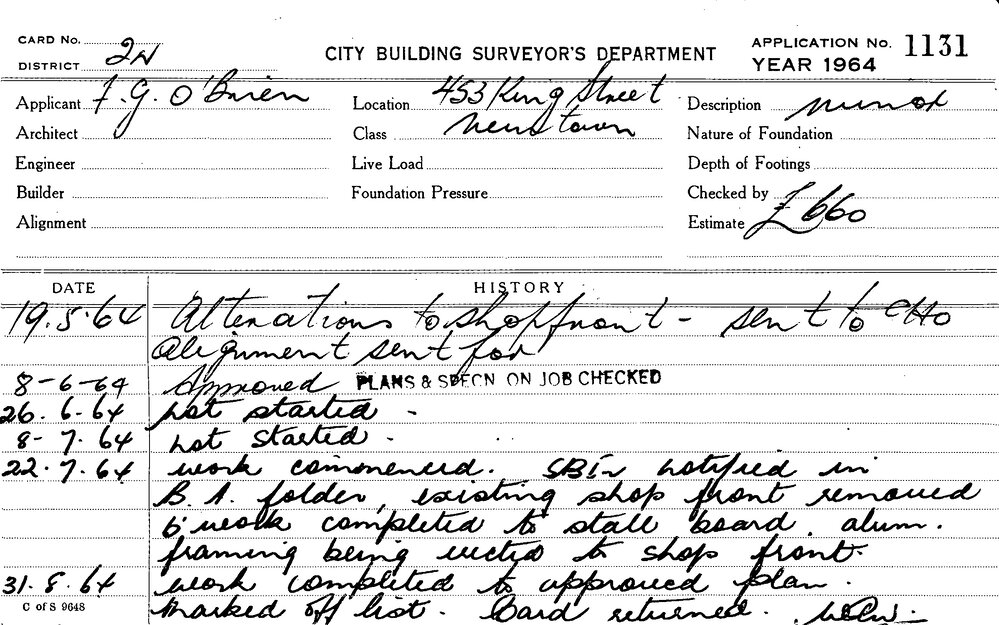 CARD No. 2N
DISTRICT
CITY BUILDING SURVEYOR'S DEPARTMENT
APPLICATION No. 1131
YEAR 1964
Applicant F. G. O'Brien
Architect
Engineer
Builder
Alignment
Location 453 King Street
Class Newtown
Live Load
Foundation Pressure
Description minor
Nature of Foundation
Depth of Footings
Checked by
Estimate £660
DATE HISTORY
19.5.64 Alterations to shopfront - sent to CHO
Alignment sent for
8-6-64 Approved PLANS & SPECN ON JOB CHECKED
26.6.64 Not started -
8-7.64 Not started -
22.7.64 work commenced. notified in
B.A. folder, existing shop front removed
work completed to stall board, alum.
framing being erected to shop front.
31.8.64 work completed to approved plan.
C of S 9648
Marked off list. Card returned.